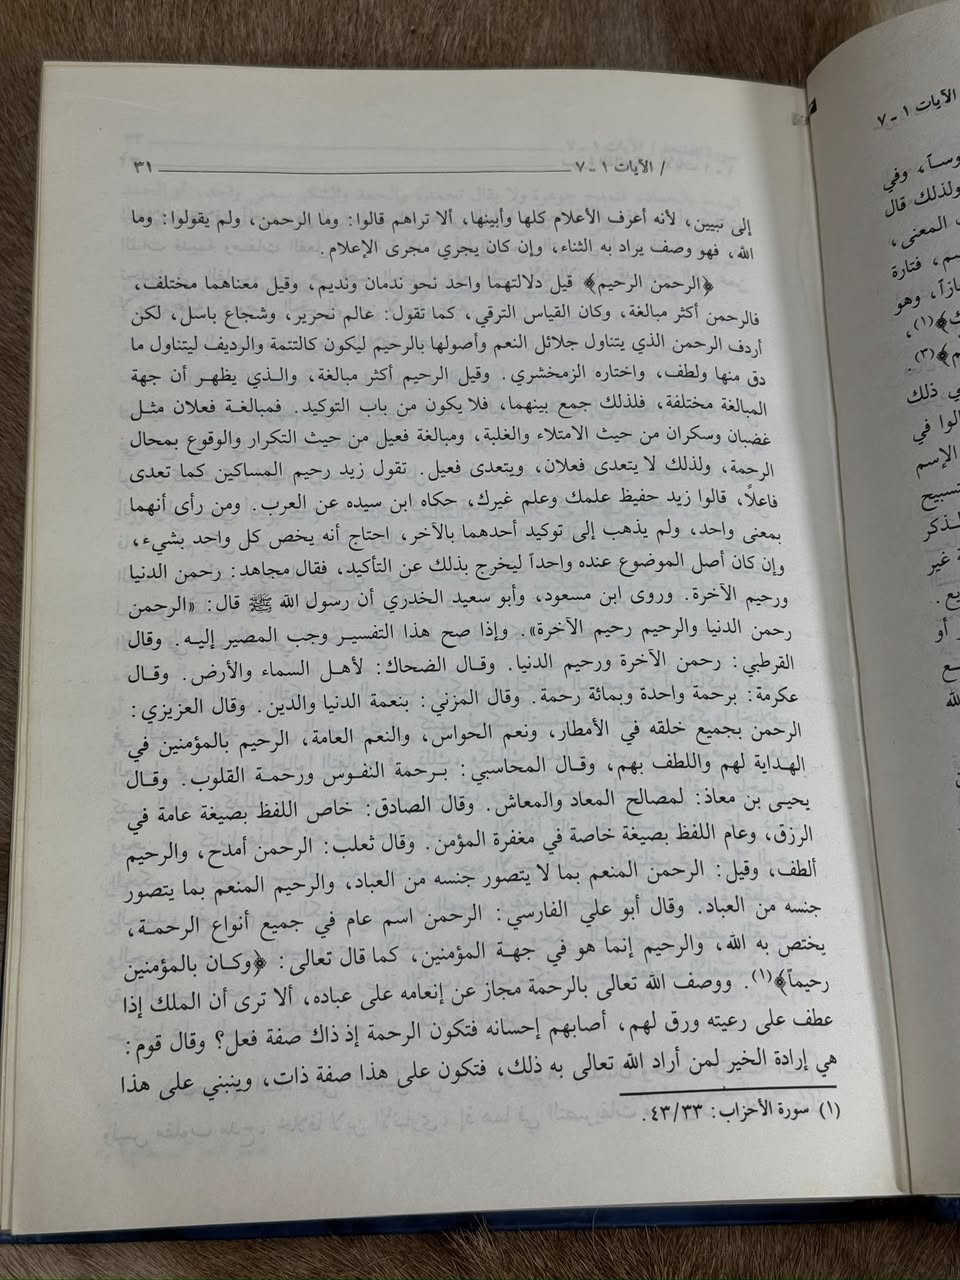 / الآيات ١ ـ ٧ ٣١
إلى تبيين، لأنه أعرف الأعلام كلها وأبينها، ألا تراهم قالوا: وما الرحمن، ولم يقولوا: وما
الله، فهو وصف يراد به الثناء، وإن كان يجري مجرى الإعلام.
﴿الرحمن الرحيم﴾ قيل دلالتهما واحد نحو ندمان ونديم، وقيل معناهما مختلف،
فالرحمن أكثر مبالغة، وكان القياس الترقي، كما تقول: عالم نحرير، وشجاع باسل، لكن
أردف الرحمن الذي يتناول جلائل النعم وأصولها بالرحيم ليكون كالتتمة والرديف ليتناول ما
دق منها ولطف، واختاره الزمخشري. وقيل الرحيم أكثر مبالغة، والذي يظهر أن جهة
المبالغة مختلفة، فلذلك جمع بينهما، فلا يكون من باب التوكيد. فمبالغة فعلان مثل
غضبان وسكران من حيث الامتلاء والغلبة، ومبالغة فعيل من حيث التكرار والوقوع بمحال
الرحمة، ولذلك لا يتعدى فعلان، ويتعدى فعيل. تقول زيد رحيم المساكين كما تعدى
فاعلاً، قالوا زيد حفيظ علمك وعلم غيرك، حكاه ابن سيده عن العرب. ومن رأى أنهما
بمعنى واحد، ولم يذهب إلى توكيد أحدهما بالآخر، احتاج أنه يخص كل واحد بشيء،
وإن كان أصل الموضوع عنده واحداً ليخرج بذلك عن التأكيد، فقال مجاهد: رحمن الدنيا
ورحيم الآخرة. وروى ابن مسعود، وأبو سعيد الخدري أن رسول الله ﷺ قال: «الرحمن
رحمن الدنيا والرحيم رحيم الآخرة». وإذا صح هذا التفسير وجب المصير إليه. وقال
القرطبي: رحمن الآخرة ورحيم الدنيا. وقال الضحاك: لأهل السماء والأرض. وقال
عكرمة: برحمة واحدة وبمائة رحمة. وقال المزني: بنعمة الدنيا والدين. وقال العزيزي:
الرحمن بجميع خلقه في الأمطار، ونعم الحواس، والنعم العامة، الرحيم بالمؤمنين في
الهداية لهم واللطف بهم، وقال المحاسبي: برحمة النفوس ورحمة القلوب. وقال
يحيى بن معاذ: لمصالح المعاد والمعاش. وقال الصادق: خاص اللفظ بصيغة عامة في
الرزق، وعام اللفظ بصيغة خاصة في مغفرة المؤمن. وقال ثعلب: الرحمن أمدح، والرحيم
ألطف، وقيل: الرحمن المنعم بما لا يتصور جنسه من العباد، والرحيم المنعم بما يتصور
جنسه من العباد. وقال أبو علي الفارسي: الرحمن اسم عام في جميع أنواع الرحمة،
يختص به الله، والرحيم إنما هو في جهة المؤمنين، كما قال تعالى: ﴿وكان بالمؤمنين
رحيماً﴾(١). ووصف الله تعالى بالرحمة مجاز عن إنعامه على عباده، ألا ترى أن الملك إذا
عطف على رعيته ورق لهم، أصابهم إحسانه فتكون الرحمة إذ ذاك صفة فعل؟ وقال قوم:
هي إرادة الخير لمن أراد الله تعالى به ذلك، فتكون على هذا صفة ذات، وينبني على هذا
(١) سورة الأحزاب: ٤٣/٣٣.
الآيات ١ ـ ٧
وفي
ولذلك قال
المعنى،
فتارة
وهو
(١)،
(٣).
ذلك
في
الإسم
غير
أو